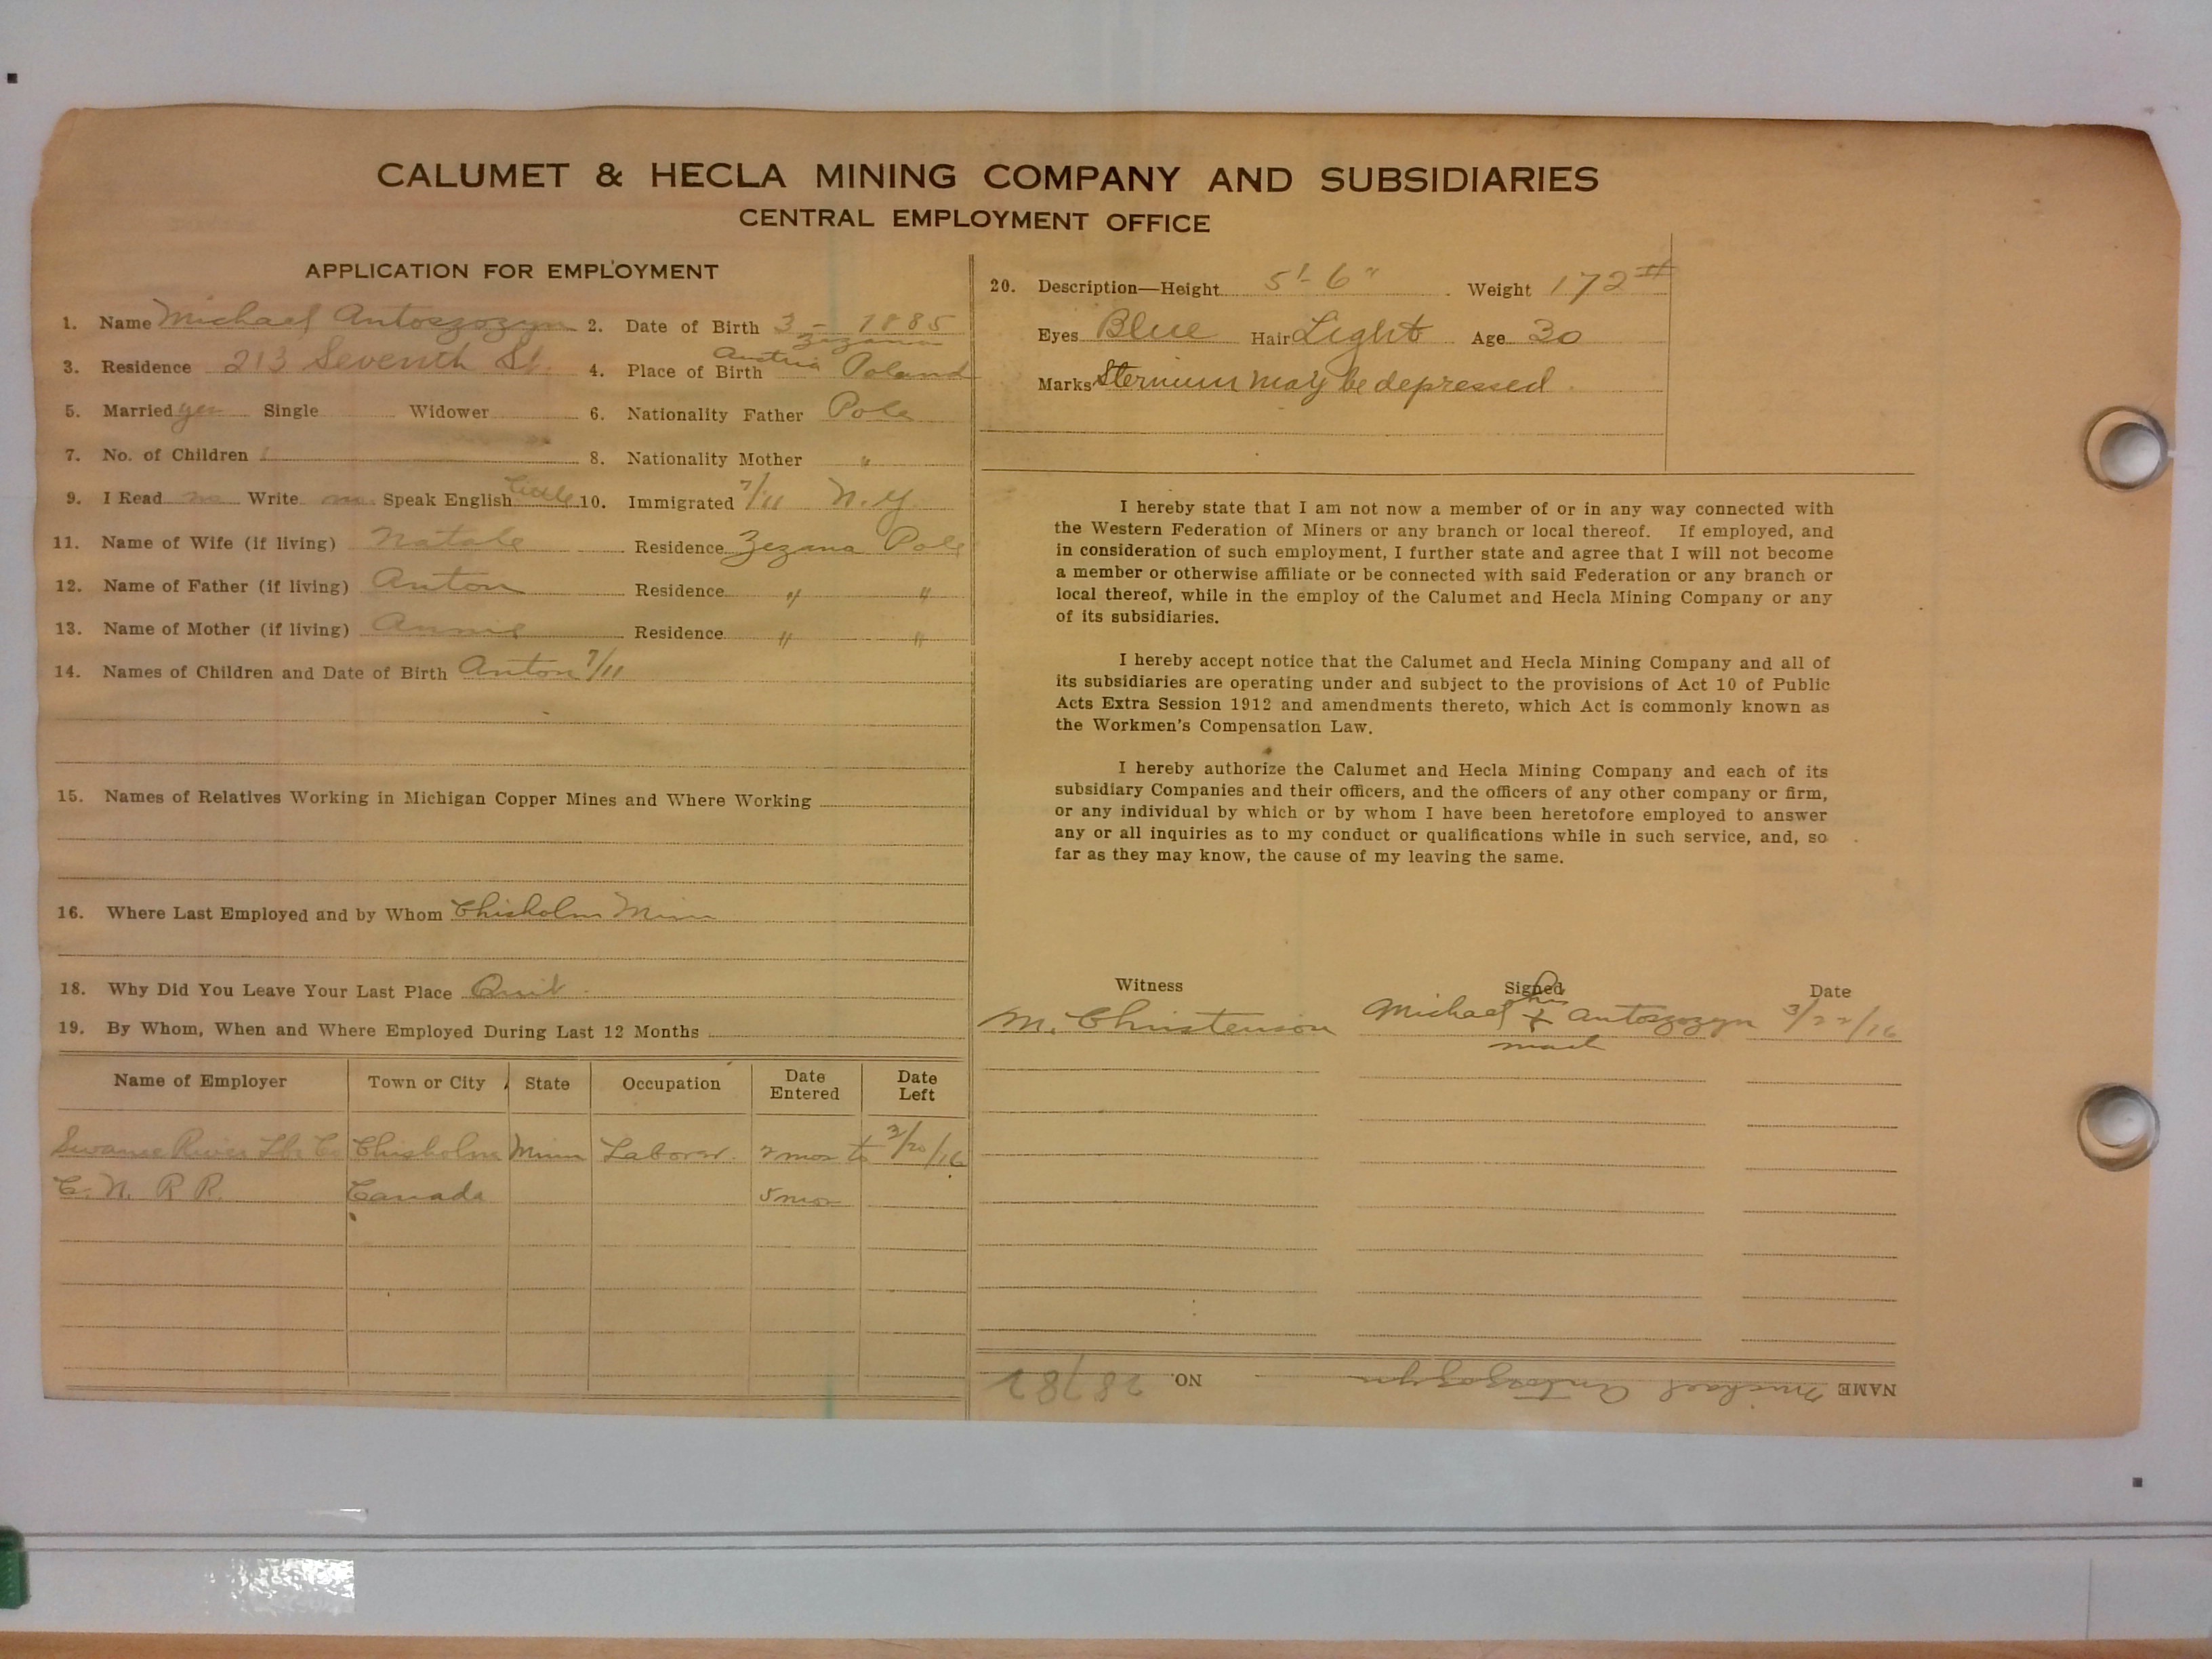 CALUMET & HECLA MINING COMPANY AND SUBSIDIARIES
CENTRAL EMPLOYMENT OFFICE
APPLICATION FOR EMPLOYMENT
1. Name Michael Antoszozyn 2. Date of Birth 3 - 1885
Zezana
3. Residence 213 Seventh St. 4. Place of Birth Austria Poland
5. Married yes Single Widower 6. Nationality Father Pole
7. No. of Children 1 8. Nationality Mother "
9. I Read no Write no Speak English little 10. Immigrated 7/11 N.Y.
11. Name of Wife (if living) Natale Residence Zezana Pole
12. Name of Father (if living) Anton Residence " "
13. Name of Mother (if living) Annie Residence " "
14. Names of Children and Date of Birth Anton 7/11
15. Names of Relatives Working in Michigan Copper Mines and Where Working
16. Where Last Employed and by Whom Chisholm Minn
18. Why Did You Leave Your Last Place Quit
19. By Whom, When and Where Employed During Last 12 Months
Name of Employer Town or City State Occupation Date Entered Date Left
Swanee River Lbr Co Chisholm Minn Laborer. 2 mos to 3/20/16
C. N. R R. Canada 5 mos
20. Description—Height 5'-6" Weight 172#
Eyes Blue Hair Light Age 30
Marks Sternum may be depressed
I hereby state that I am not now a member of or in any way connected with
the Western Federation of Miners or any branch or local thereof. If employed, and
in consideration of such employment, I further state and agree that I will not become
a member or otherwise affiliate or be connected with said Federation or any branch or
local thereof, while in the employ of the Calumet and Hecla Mining Company or any
of its subsidiaries.
I hereby accept notice that the Calumet and Hecla Mining Company and all of
its subsidiaries are operating under and subject to the provisions of Act 10 of Public
Acts Extra Session 1912 and amendments thereto, which Act is commonly known as
the Workmen's Compensation Law.
I hereby authorize the Calumet and Hecla Mining Company and each of its
subsidiary Companies and their officers, and the officers of any other company or firm,
or any individual by which or by whom I have been heretofore employed to answer
any or all inquiries as to my conduct or qualifications while in such service, and, so
far as they may know, the cause of my leaving the same.
Witness Signed Date
his
M. Christenson Michael X Antoszozyn 3/22/16
mark
NAME Michael Antoszozyn NO. 28782